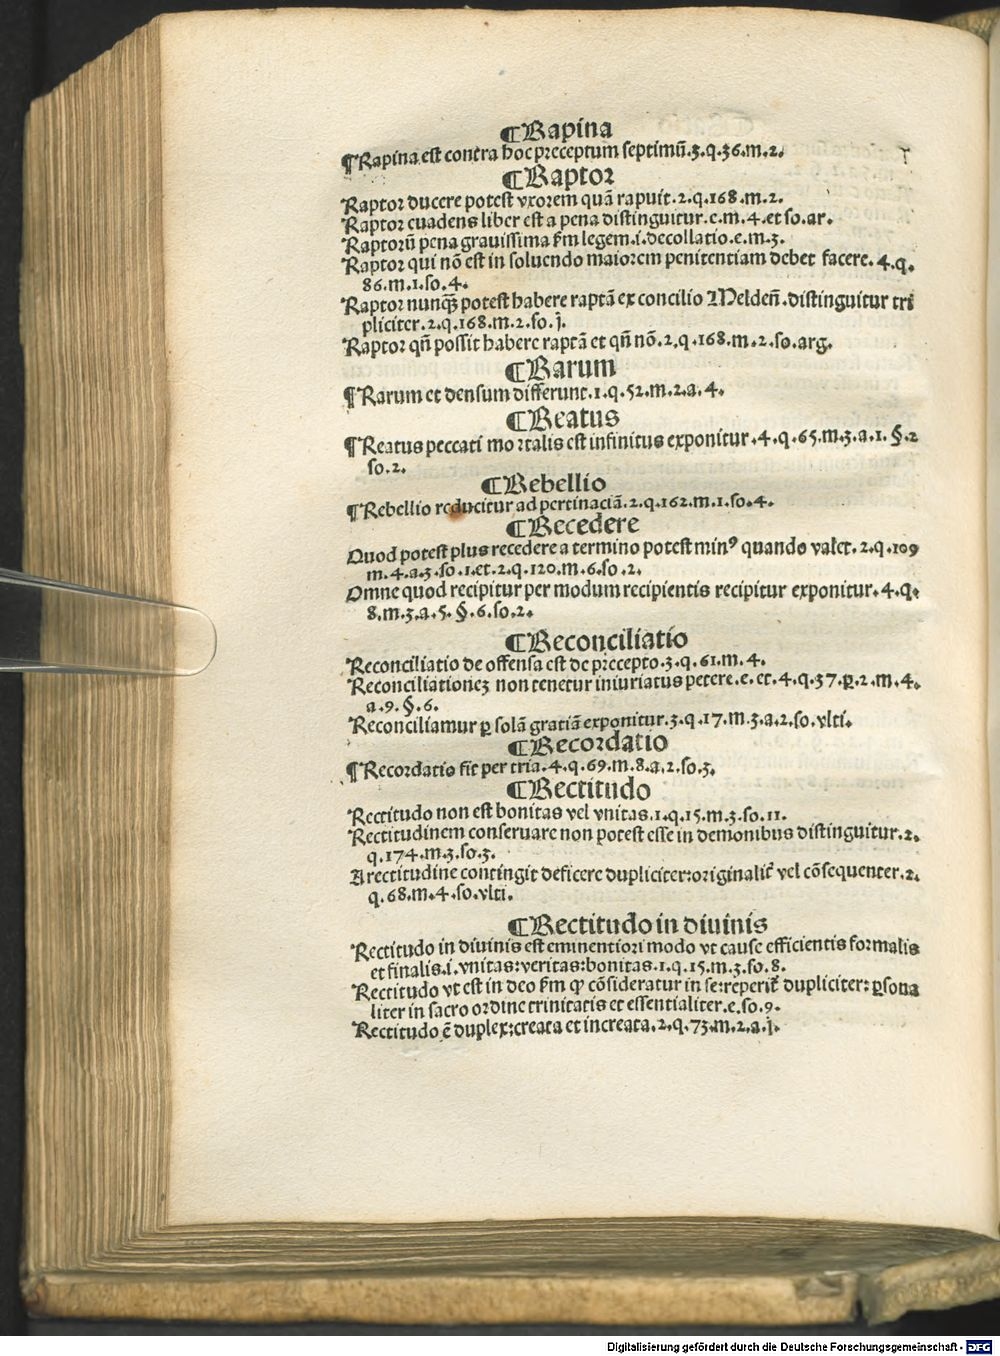 ¶Rapina
¶Rapina est contra hoc preceptum septimū.3.q.36.m.2.
¶Raptor
Raptor ducere potest vxorem quā rapuit.2.q.168.m.2.
Raptor euadens liber est a pena distinguitur.e.m.4.et so.ar.
Raptorū pena grauissima ẜm legem.i.decollatio.e.m.3.
Raptor qui nō est in soluendo maiorem penitentiam debet facere.4.q.
86.m.1.so.4.
Raptor nunqꝫ potest habere raptā ex concilio Melden̄.distinguitur tri
pliciter.2.q.168.m.2.so.j.
Raptor qn̄ possit habere raptā et qn̄ nō.2.q.168.m.2.so.arg.
¶Rarum
¶Rarum et densum differunt.1.q.52.m.2.a.4.
¶Reatus
¶Reatus peccati mortalis est infinitus exponitur.4.q.65.m.3.a.1.§.2
so.2.
¶Rebellio
¶Rebellio reducitur ad pertinaciā.2.q.162.m.1.so.4.
¶Recedere
Quod potest plus recedere a termino potest minꝰ quando valet.2.q.109
m.4.a.3.so.1.et.2.q.120.m.6.so.2.
Omne quod recipitur per modum recipientis recipitur exponitur.4.q.
8.m.3.a.5.§.6.so.2.
¶Reconciliatio
Reconciliatio de offensa est de precepto.3.q.61.m.4.
Reconciliationeꝫ non tenetur iniuriatus petere.e.et.4.q.37.ꝑ.2.m.4.
a.9.§.6.
Reconciliamur ꝑ solā gratiā exponitur.3.q.17.m.3.a.2.so.vlti.
¶Recordatio
¶Recordatio fit per tria.4.q.69.m.8.a.2.so.3.
¶Rectitudo
Rectitudo non est bonitas vel vnitas.1.q.15.m.3.so.11.
Rectitudinem conseruare non potest esse in demonibus distinguitur.2.
q.174.m.3.so.3.
A rectitudine contingit deficere dupliciter:originalit̄ vel cōsequenter.2.
q.68.m.4.so.vlti.
¶Rectitudo in diuinis
Rectitudo in diuinis est eminentiori modo vt cause efficientis formalis
et finalis.i.vnitas:veritas:bonitas.1.q.15.m.3.so.8.
Rectitudo vt est in deo ẜm ꝙ cōsideratur in se:reperit̄ dupliciter:ꝑsona
liter in sacro ordine trinitatis et essentialiter.e.so.9.
Rectitudo ē duplex:creata et increata.2.q.73.m.2.a.j.
Digitalisierung gefördert durch die Deutsche Forschungsgemeinschaft - DFG